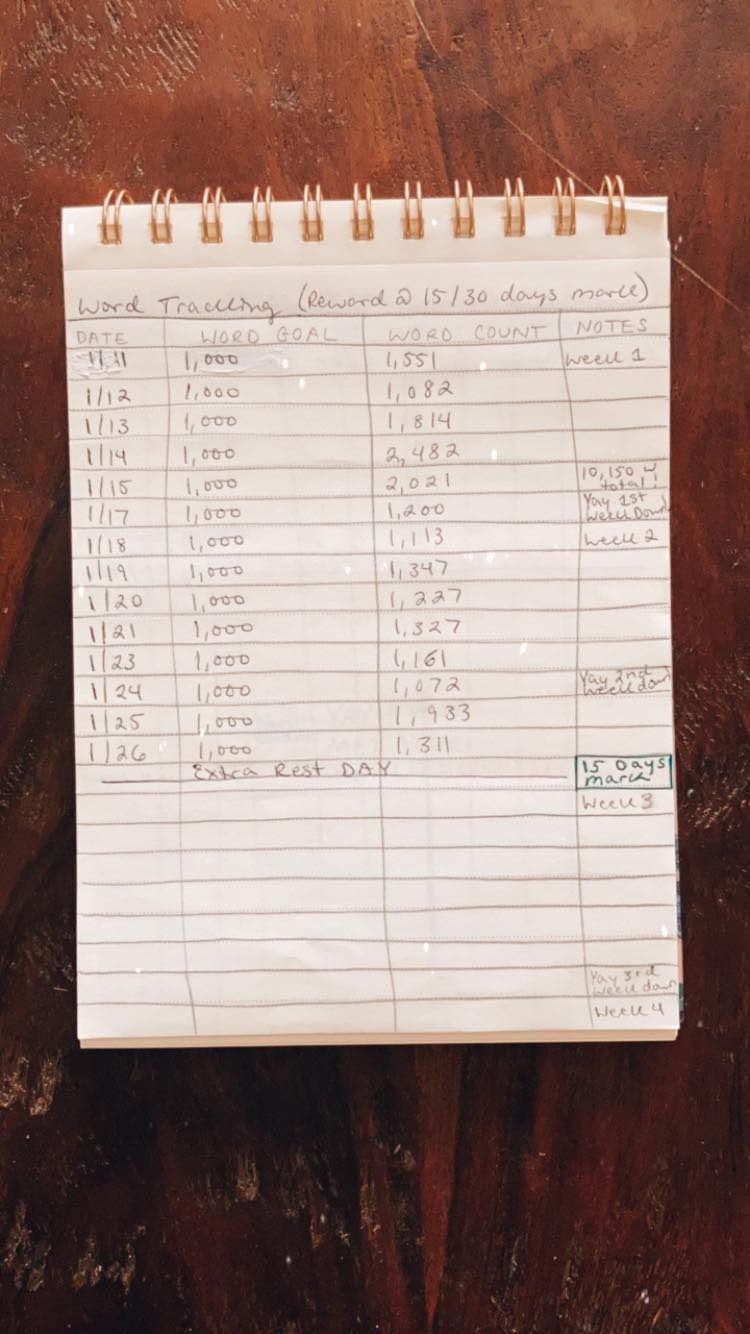 Word Tracking (Reward @ 15/30 days mark)
DATE WORD GOAL WORD COUNT NOTES
1/11 1,000 1,551 Week 1
1/12 1,000 1,082
1/13 1,000 1,814
1/14 1,000 2,482
1/15 1,000 2,021 10,150 total!
1/17 1,000 1,200 Yay 1st Week Down
1/18 1,000 1,113 Week 2
1/19 1,000 1,347
1/20 1,000 1,227
1/21 1,000 1,327
1/23 1,000 1,161
1/24 1,000 1,072 Yay 2nd Week down
1/25 1,000 1,933
1/26 1,000 1,311
Extra Rest DAY 15 Days mark
Week 3
Yay 3rd Week down
Week 4